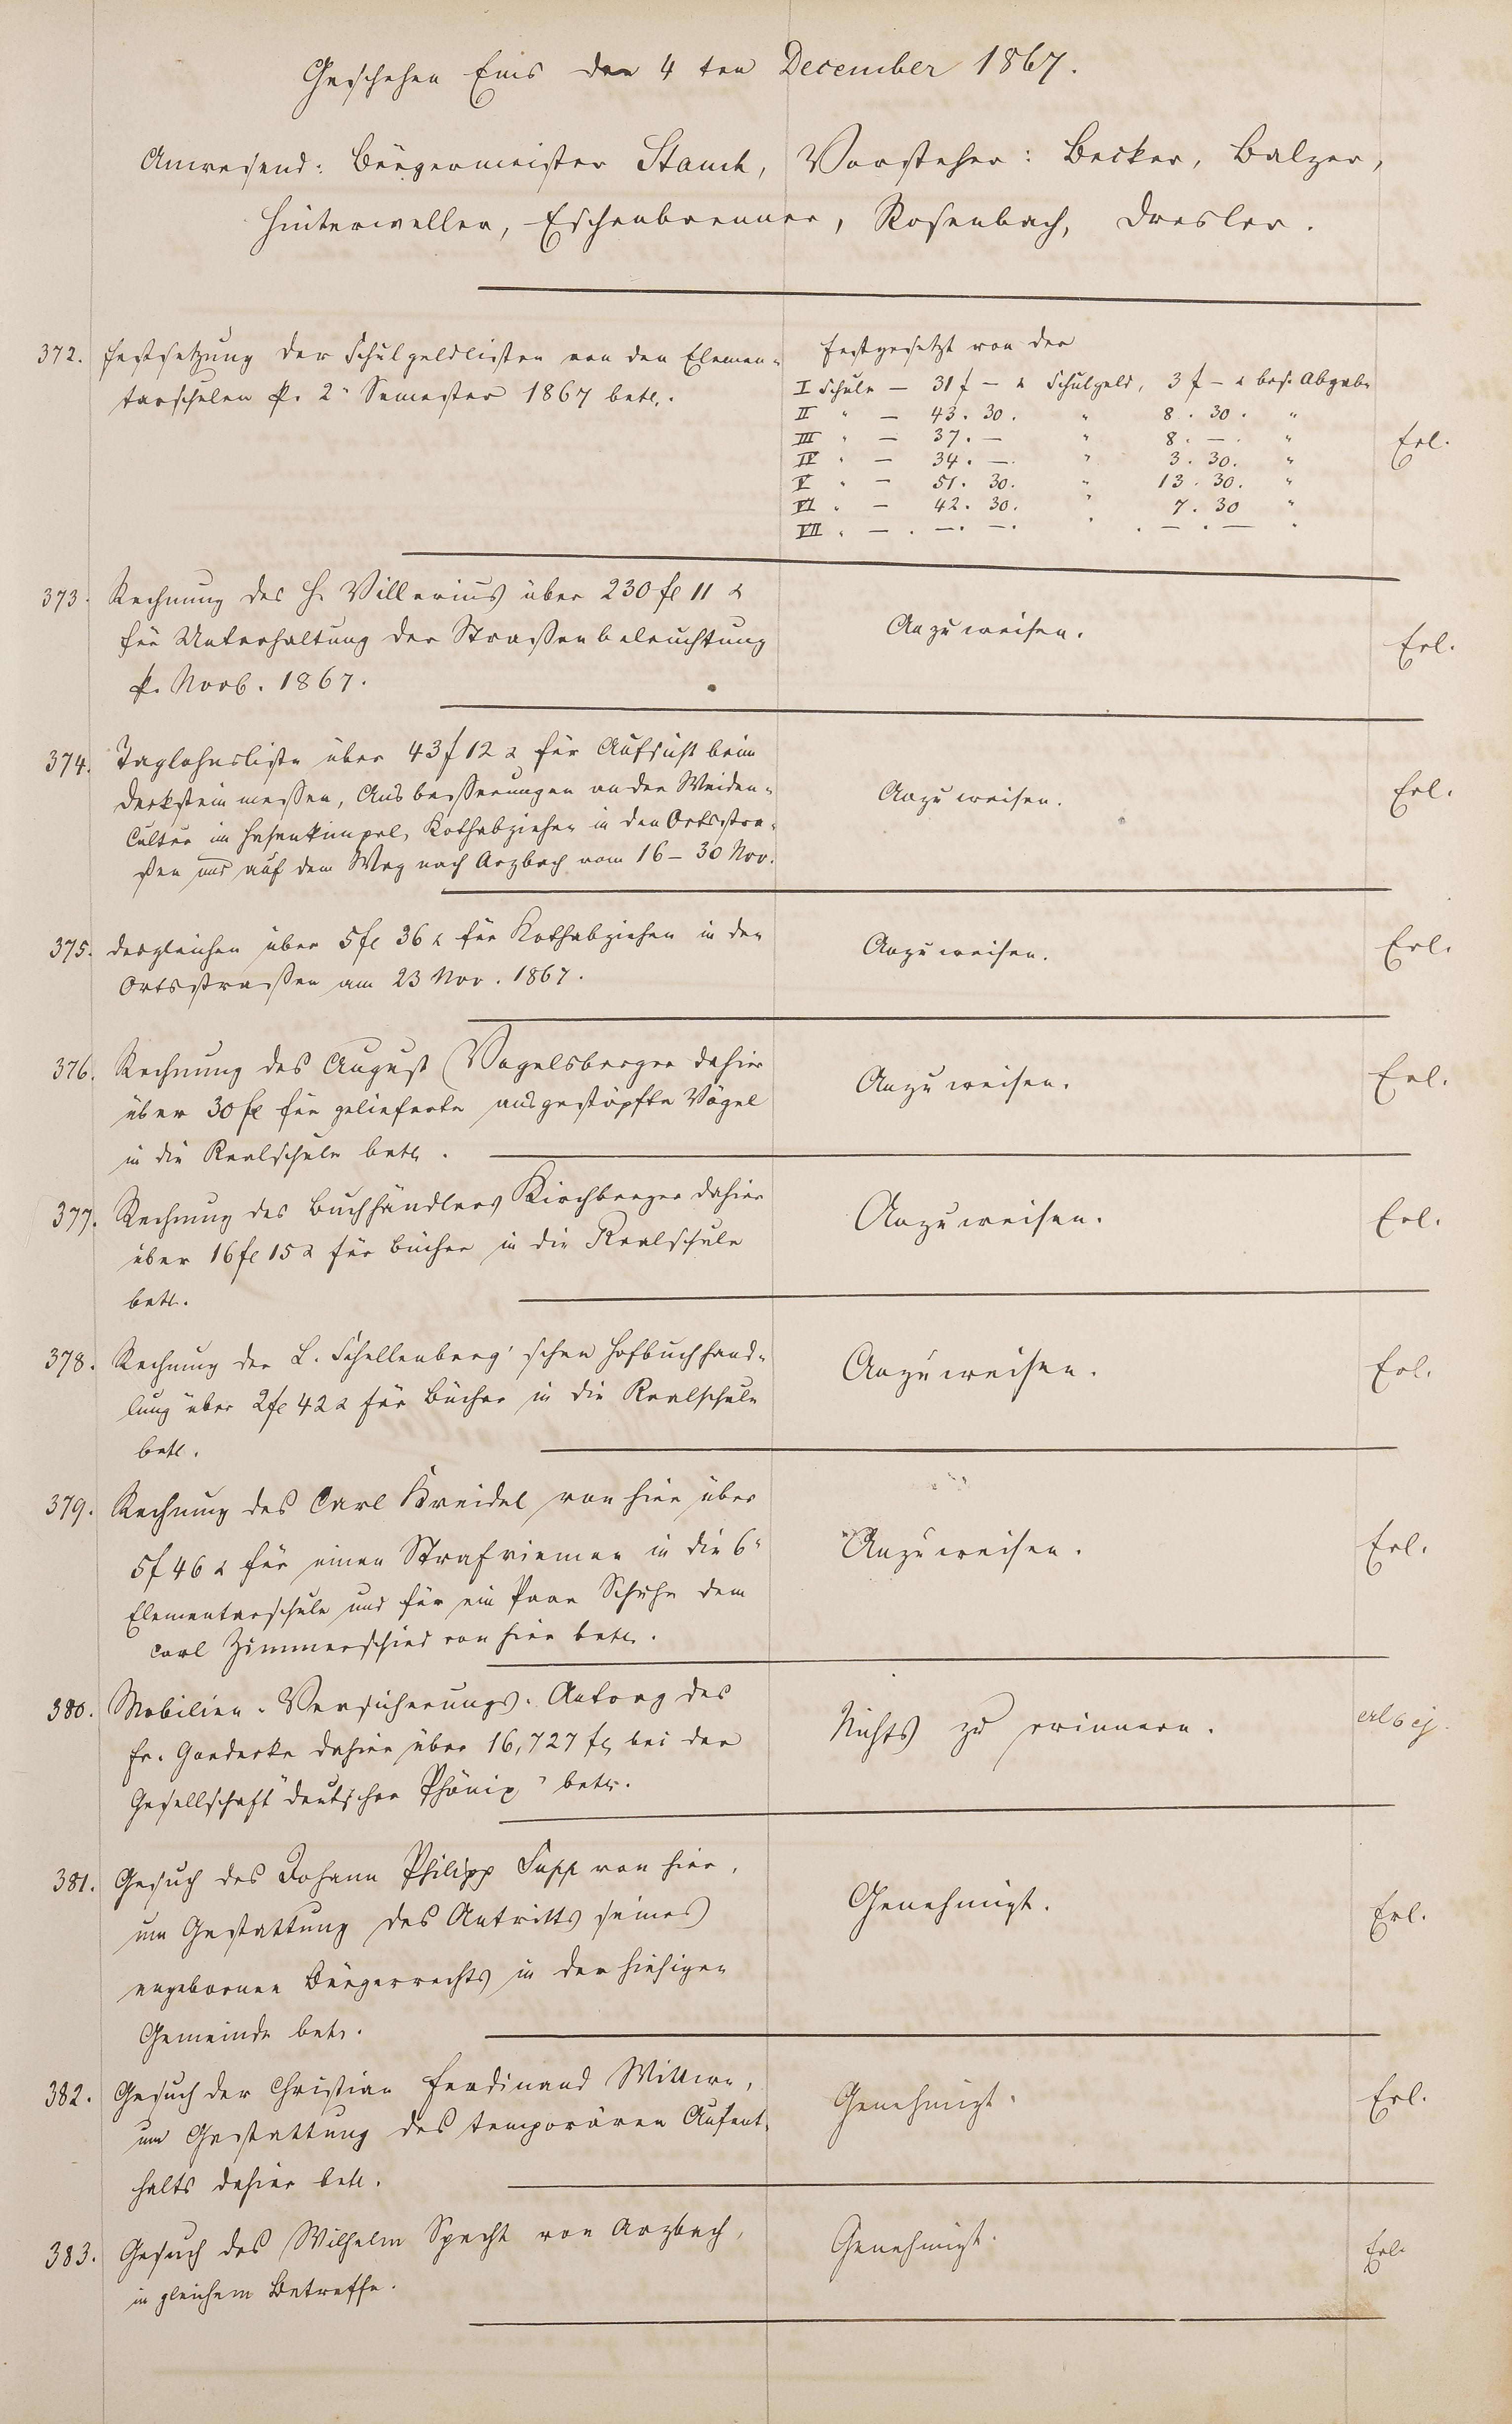 Geschehen Ems den 4 ten December 1867.
Anwesend: Bürgermeister Stauch, Vorsteher: Becker, Balzer,
Hinterweller, Eschenbrenner, Rosenbach, Dresler.
372. Festsetzung der Schulgeldlisten von den Elemen-
tarschulen p. 2" Semester 1867 betr.
Festgesetzt von der
I Schule — 31 f — x Schulgeld, 3 f — x bes. Abgabe
II " — 43. 30. " 8. 30. "
III " — 37. — " 8. —. "
IV " — 34. —. " 3. 30. "
V " — 51. 30. " 13. 30. "
VI " — 42. 30. " 7. 30 "
VII " — . —. —. " . — . — "
Erl.
373. Rechnung des H. Villerius über 230 fl 11 x
für Unterhaltung der Straßenbeleuchtung
p. Novb. 1867.
Anzuweisen.
Erl.
374. Taglohnsliste über 43 f 12 x für Aufsicht beim
Decksteinmessen, Ausbesserungen an der Weiden-
Cultur im Hasenkümpel, Kothabziehen in den Ortsstra-
ßen und auf dem Weg nach Arzbach vom 16 – 30 Nov.
Anzuweisen.
Erl.
375. desgleichen über 5 fl 36 x für Kothabziehen in den
Ortsstraßen am 23 Nov. 1867.
Anzuweisen.
Erl.
376. Rechnung des August Vogelsberger dahier
über 30 fl für gelieferte ausgestopfte Vögel
in die Realschule betr.
Anzuweisen.
Erl.
377. Rechnung des Buchhändlers Kirchberger dahier
über 16 fl 15 x für Bücher in die Realschule
betr.
Anzuweisen.
Erl.
378. Rechnung der L. Schellenberg'schen Hofbuchhand-
lung über 2 fl 42 x für Bücher in die Realschule
betr.
Anzuweisen.
Erl.
379. Rechnung des Carl Kreidel von hier über
5 f 46 x für einen Strafriemen in die 6"
Elementarschule und für ein Paar Schuhe dem
Carl Zimmerschied von hier betr.
Anzuweisen.
Erl.
380. Mobilien-Versicherungs-Antrag des
Fr. Goedecke dahier über 16,727 fl bei der
Gesellschaft "deutscher Phönix" betr.
Nichts zu erinnern.
erl 6 ej.
381. Gesuch des Johann Philipp Supp von hier,
um Gestattung des Antritts seines
angebornen Bürgerrechts in der hiesigen
Gemeinde betr.
Genehmigt.
Erl.
382. Gesuch der Christian Ferdinand Wittwe,
um Gestattung des temporären Aufent-
halts dahier betr.
Genehmigt.
Erl.
383. Gesuch des Wilhelm Specht von Arzbach,
in gleichem Betreffe.
Genehmigt.
Erl.